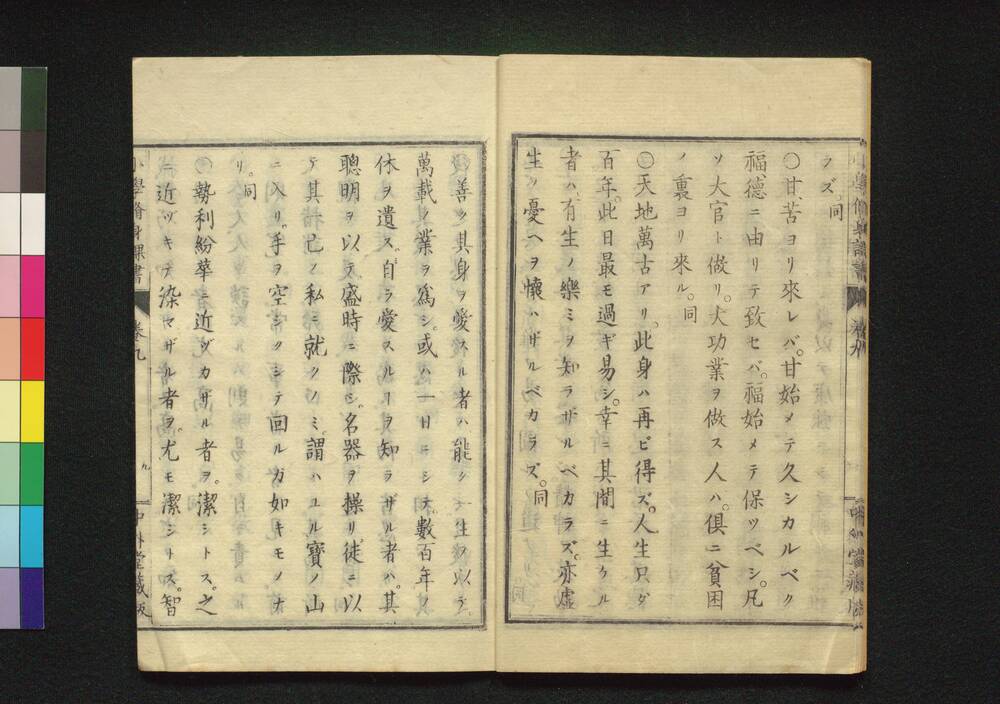 ラズ。同
〇甘、苦ヨリ來レバ。甘始メテ久シカルベク
福、德ニ由リテ致セバ。福始メテ保ツベシ。凡
ソ大官ト做リ。大功業ヲ做ス人ハ。俱ニ貧困
ノ裏ヨリ來ル。同
〇天地萬古アリ。此身ハ再ビ得ズ。人生只ダ
百年。此日最モ過ギ易シ。幸ニ其間ニ生クル
者ハ、有生ノ樂ミヲ知ラザルベカラズ。亦虛
生ノ憂ヘヲ懷ハザルベカラズ。同
善ク其身ヲ愛スル者ハ能ク一生ヲ以テ。
萬載ノ業ヲ爲シ。或ハ一日ニシテ。數百年ノ
休ヲ遺ス。自ラ愛スルヲ知ラザル者ハ。其
聰明ヲ以テ盛時ニ際シ。名器ヲ操リ徒ニ以
テ其一己ノ私ニ就クノミ。謂ハユル寶ノ山
ニ入リ。手ヲ空シクシテ回ルガ如キモノナ
リ。同
〇勢利紛華ニ近ヅカザル者ヲ。潔シトス。之
ニ近ヅキテ染マザル者ヲ。尤モ潔シトス。智
小學脩身課書
卷九
九
中外堂藏版